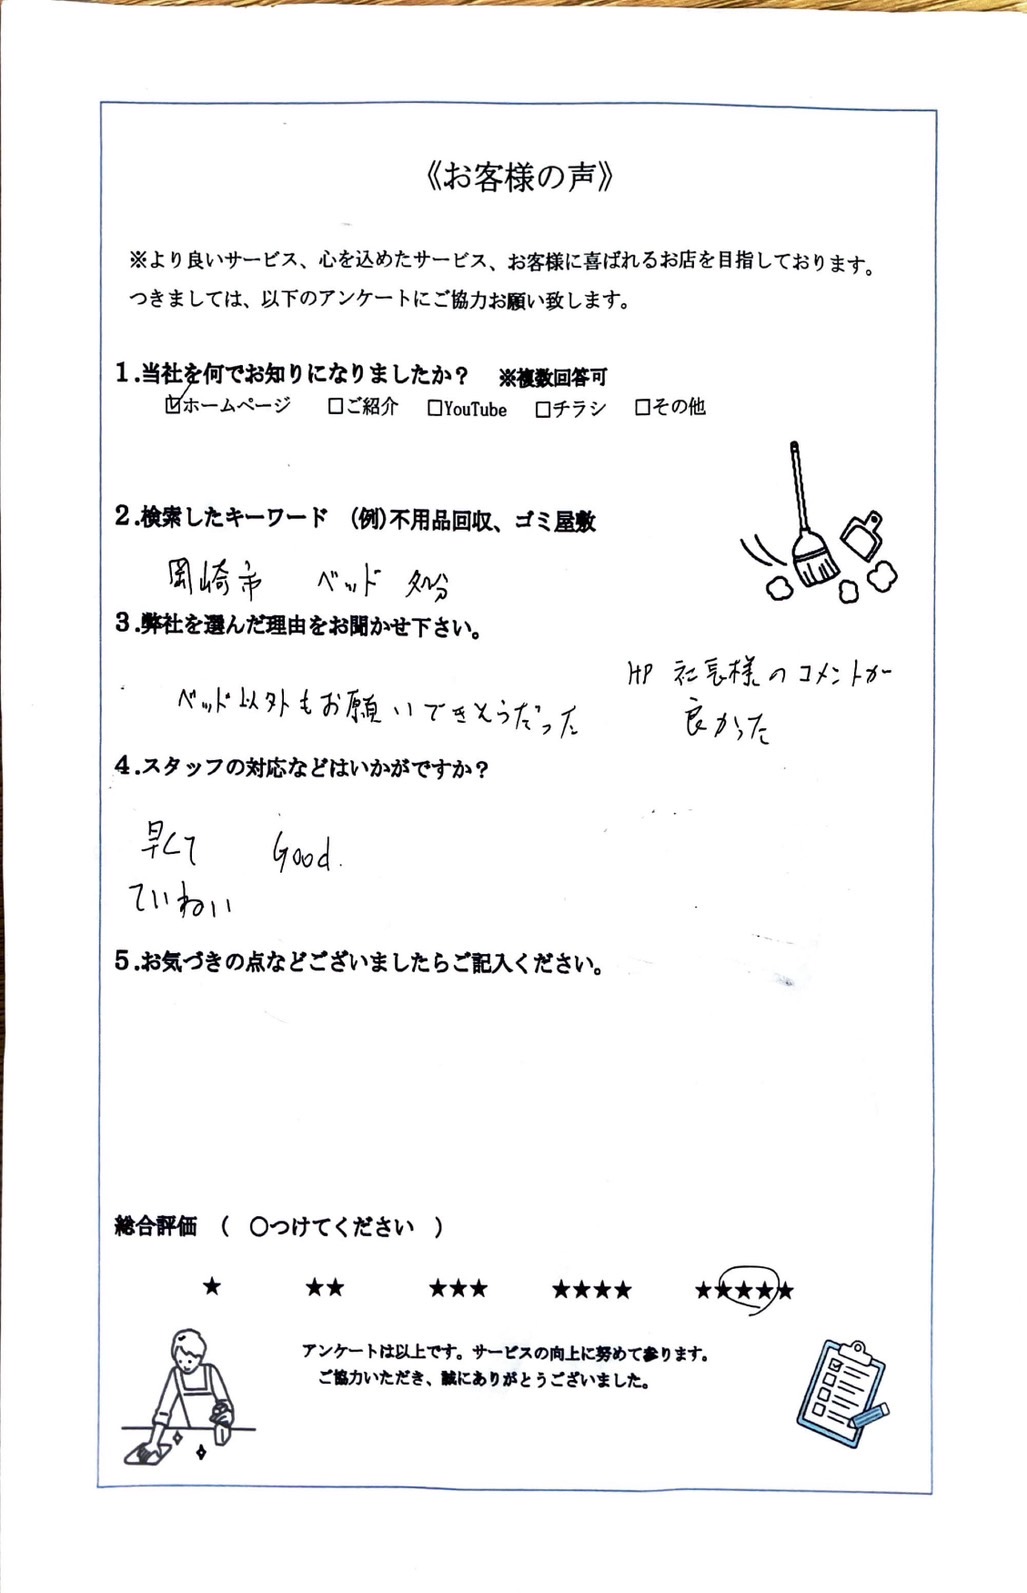 《お客様の声》
※より良いサービス、心を込めたサービス、お客様に喜ばれるお店を目指しております。
つきましては、以下のアンケートにご協力お願い致します。
1.当社を何でお知りになりましたか？ ※複数回答可
☑ホームページ □ご紹介 □YouTube □チラシ □その他
2.検索したキーワード (例)不用品回収、ゴミ屋敷
岡崎市 ベッド 処分
3.弊社を選んだ理由をお聞かせ下さい。
ベッド以外もお願いできそうだった
HP 社長様のコメントが
良かった
4.スタッフの対応などはいかがですか？
早くて Good.
ていねい
5.お気づきの点などございましたらご記入ください。
総合評価 ( ○つけてください )
★ ★★ ★★★ ★★★★ ★★★★★
アンケートは以上です。サービスの向上に努めて参ります。
ご協力いただき、誠にありがとうございました。